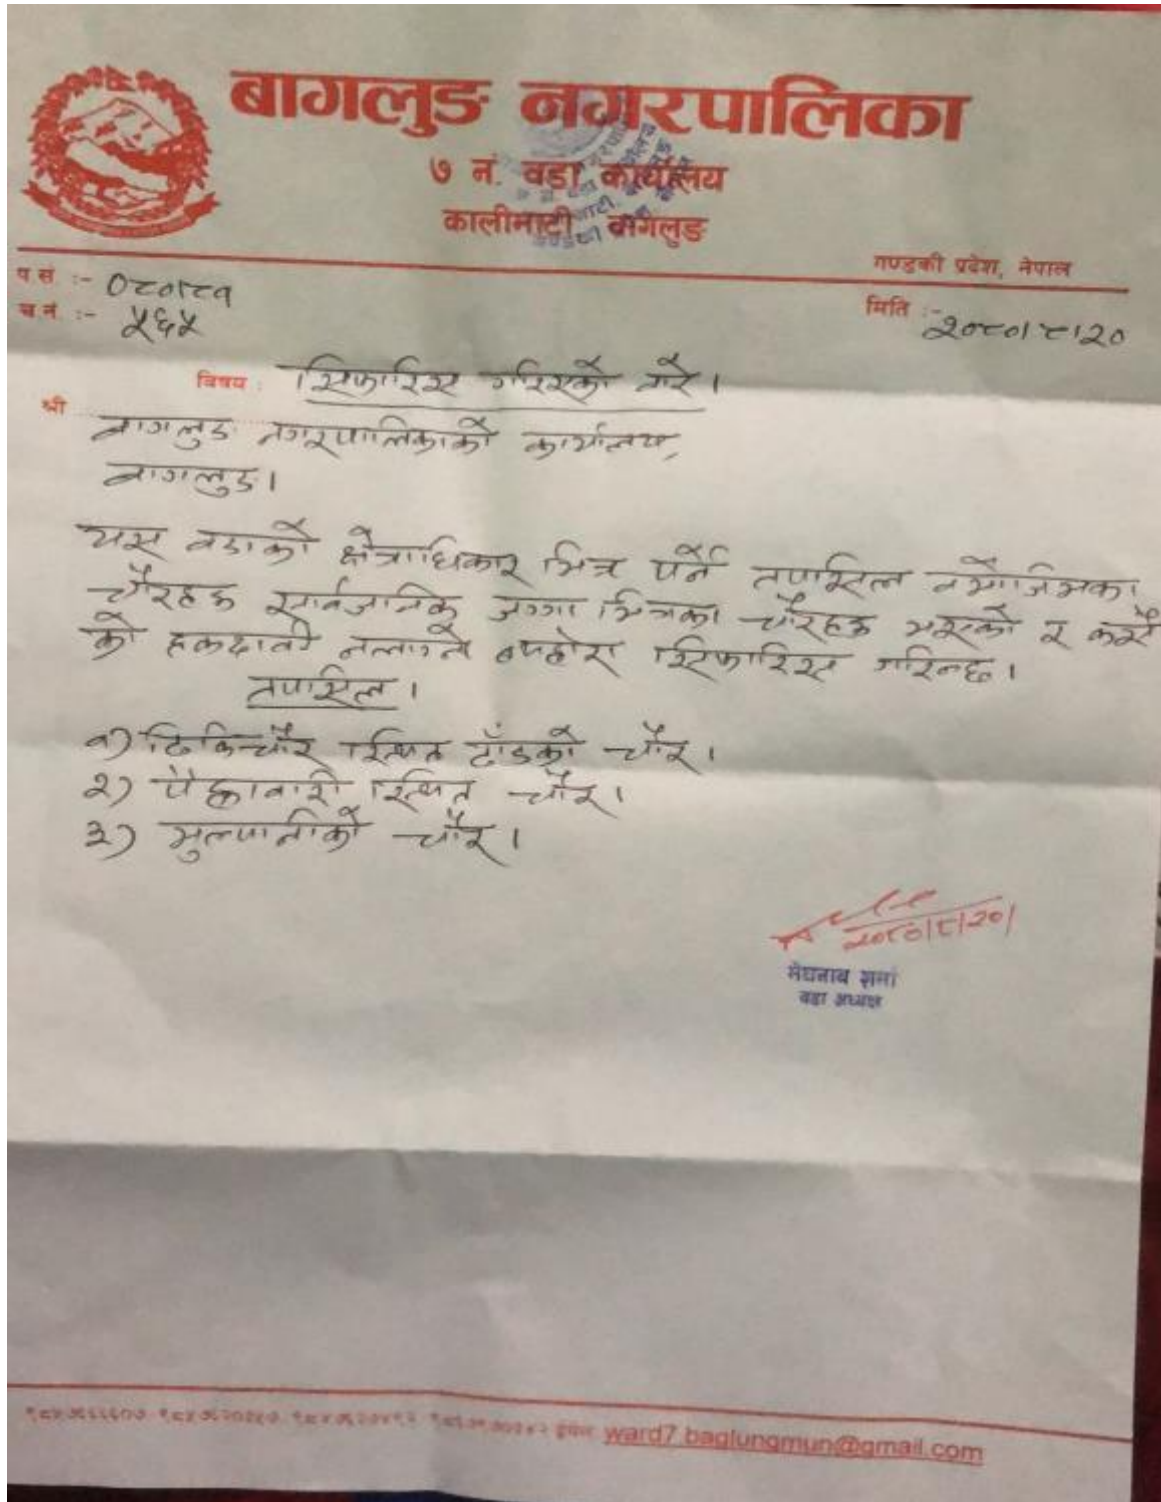 बागलुङ नगरपालिका
७ नं. वडा कार्यालय
कालीमाटी, बागलुङ
गण्डकी प्रदेश, नेपाल
प.सं :- ०८०/८१
च.नं. :- ५६५
मिति :- २०८०/८/२०
विषय : सिफारिस गरिएको बारे।
श्री बागलुङ नगरपालिकाको कार्यालय,
बागलुङ।
यस वडाको क्षेत्राधिकार भित्र पर्ने तपसिल बमोजिमका
चौरहरु सार्वजनिक जग्गा भित्रका चौरहरु भएको र कसै
को हकदावी नलाग्ने व्यहोरा सिफारिस गरिन्छ।
तपसिल।
१) टिकिचौर स्थित टाँडको चौर।
२) स्थित चौर।
३) मुलपानीको चौर।
२०८०/८/२०
मेघनाथ शर्मा
वडा अध्यक्ष
ward7.baglungmun@gmail.com